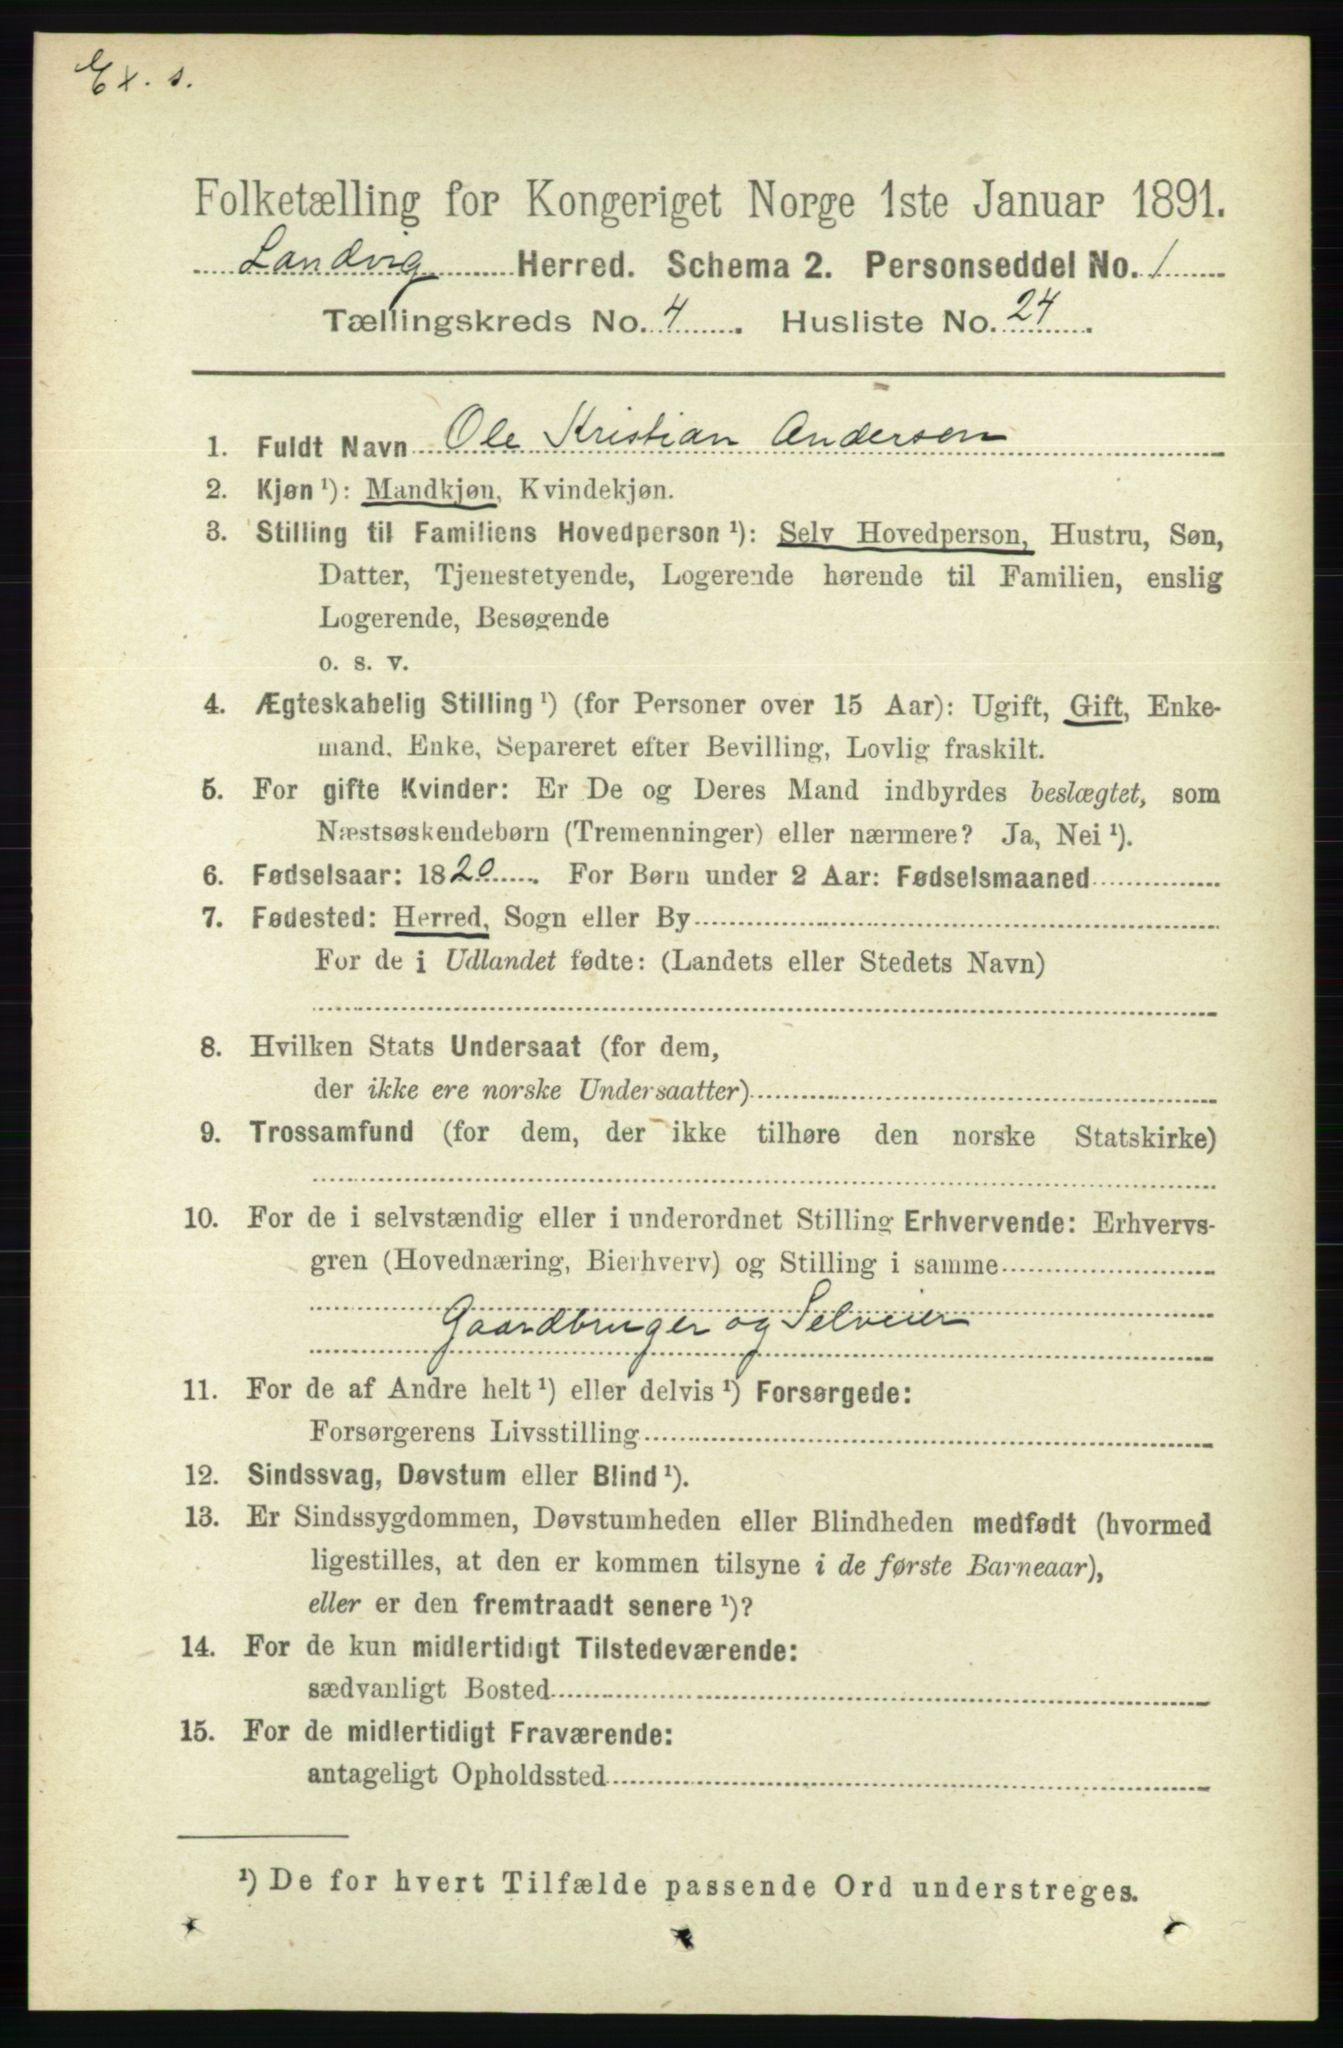 Ex. s.
Folketælling for Kongeriget Norge 1ste Januar 1891.
Landvig Herred. Schema 2. Personseddel No. 1
Tællingskreds No. 4. Husliste No. 24.
1. Fuldt Navn Ole Kristian Andersen
2. Kjøn ¹): Mandkjøn, Kvindekjøn.
3. Stilling til Familiens Hovedperson ¹): Selv Hovedperson, Hustru, Søn,
Datter, Tjenestetyende, Logerende hørende til Familien, enslig
Logerende, Besøgende
o. s. v.
4. Ægteskabelig Stilling ¹) (for Personer over 15 Aar): Ugift, Gift, Enke-
mand, Enke, Separeret efter Bevilling, Lovlig fraskilt.
5. For gifte Kvinder: Er De og Deres Mand indbyrdes beslægtet, som
Næstsøskendebørn (Tremenninger) eller nærmere? Ja, Nei ¹).
6. Fødselsaar: 1820. For Børn under 2 Aar: Fødselsmaaned
7. Fødested: Herred, Sogn eller By
For de i Udlandet fødte: (Landets eller Stedets Navn)
8. Hvilken Stats Undersaat (for dem,
der ikke ere norske Undersaatter)
9. Trossamfund (for dem, der ikke tilhøre den norske Statskirke)
10. For de i selvstændig eller i underordnet Stilling Erhvervende: Erhvervs-
gren (Hovednæring, Bierhverv) og Stilling i samme
Gaardbruger og Selveier
11. For de af Andre helt ¹) eller delvis ¹) Forsørgede:
Forsørgerens Livsstilling
12. Sindssvag, Døvstum eller Blind ¹).
13. Er Sindssygdommen, Døvstumheden eller Blindheden medfødt (hvormed
ligestilles, at den er kommen tilsyne i de første Barneaar),
eller er den fremtraadt senere ¹)?
14. For de kun midlertidigt Tilstedeværende:
sædvanligt Bosted
15. For de midlertidigt Fraværende:
antageligt Opholdssted
¹) De for hvert Tilfælde passende Ord understreges.